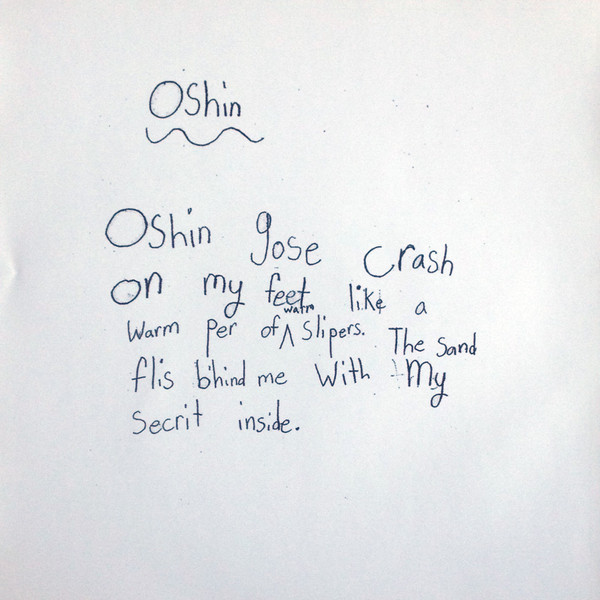 Oshin
Oshin gose crash
on my feet like a
warm per of ^ watr slipers. The sand
flis bihind me with My
Secrit inside.